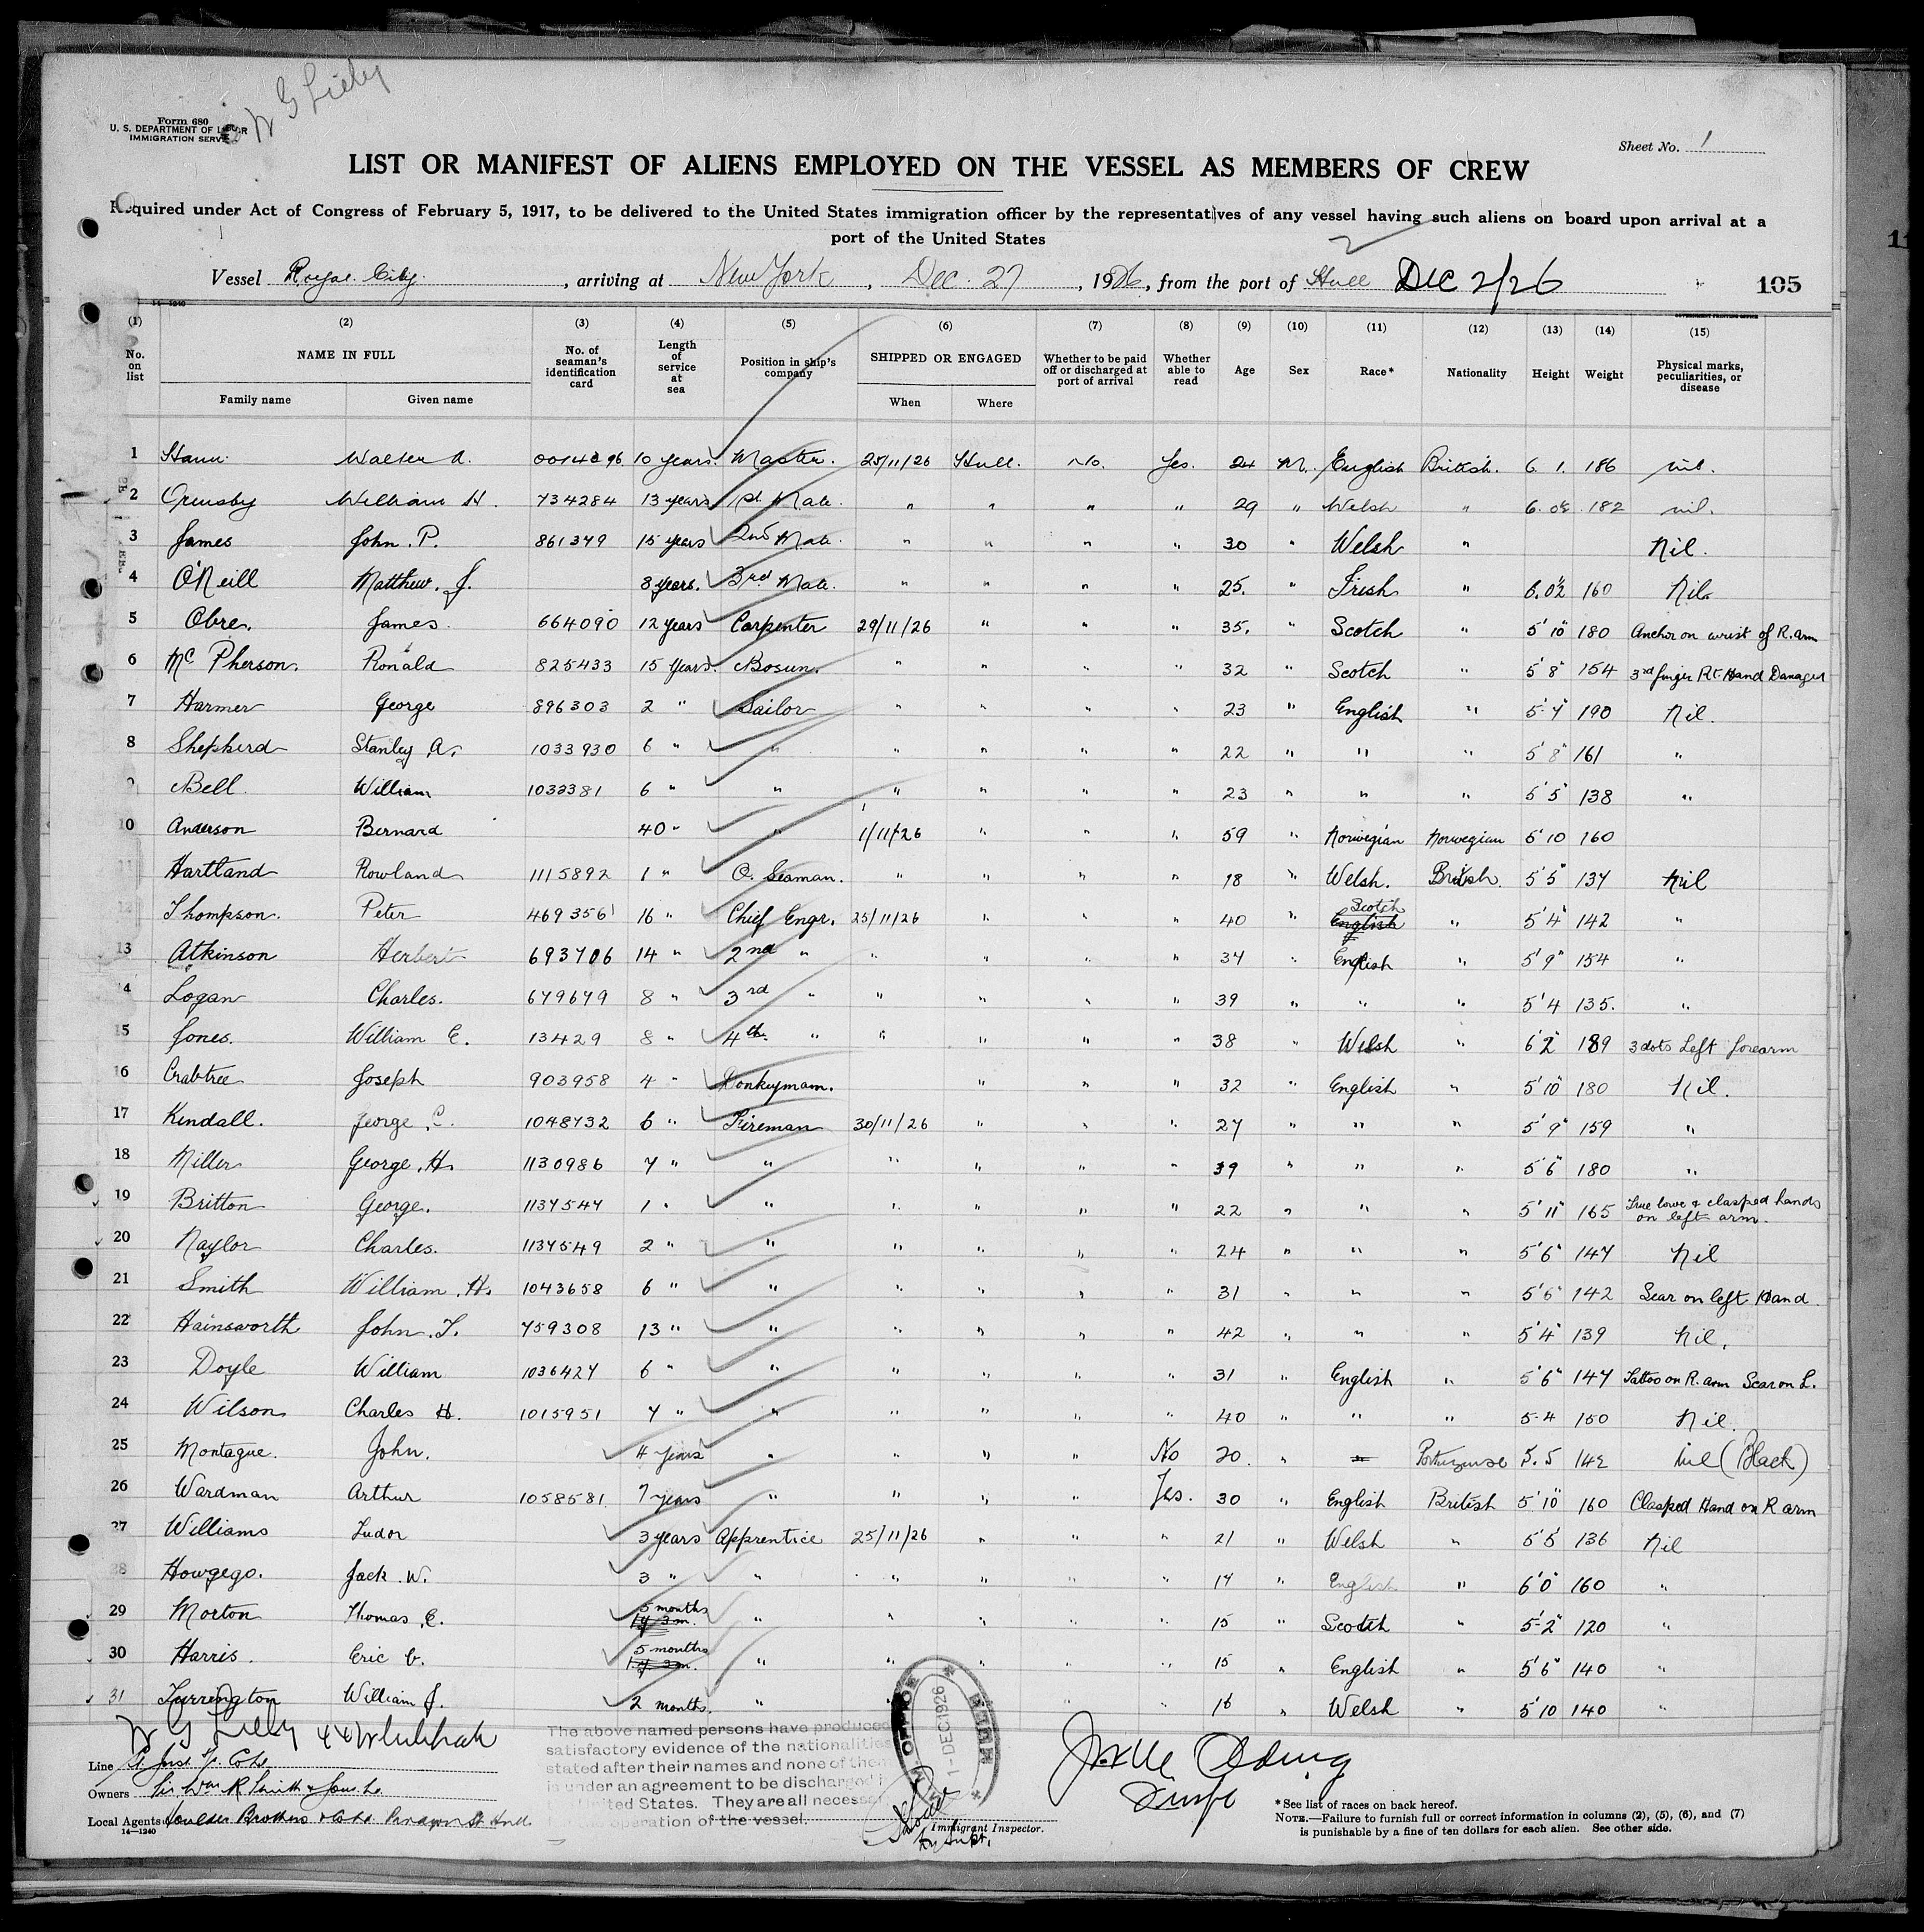 W G Lilly
Form 680
U. S. DEPARTMENT OF LABOR
IMMIGRATION SERVICE
Sheet No. 1
LIST OR MANIFEST OF ALIENS EMPLOYED ON THE VESSEL AS MEMBERS OF CREW
Required under Act of Congress of February 5, 1917, to be delivered to the United States immigration officer by the representatives of any vessel having such aliens on board upon arrival at a
port of the United States
Vessel Royal City, arriving at New York, Dec. 27, 1926, from the port of Hull DEC 2/26 105
(1) (2) (3) (4) (5) (6) (7) (8) (9) (10) (11) (12) (13) (14) (15)
No. on list NAME IN FULL Family name Given name No. of seaman's identification card Length of service at sea Position in ship's company SHIPPED OR ENGAGED When Where Whether to be paid off or discharged at port of arrival Whether able to read Age Sex Race* Nationality Height Weight Physical marks, peculiarities, or disease
1 Hann Walter A. 10 years Master. 25/11/26 Hull. No. Yes. M. English British. 6. 1. 186 nil.
2 Ormsby William H. 734284 13 years 1st Mate. " " " " 29 " Welsh " 6. 0½ 182 nil.
3 James John. P. 861349 15 years 2nd Mate. " " " " 30 " Welsh " Nil.
4 O'Neill Matthew. J. 8 years. 3rd Mate. " " " " 25. " Irish " 6. 0½ 160 Nil.
5 Obre. James. 664090 12 years Carpenter 29/11/26 " " " 35. " Scotch " 5' 10" 180 Anchor on wrist of R. arm
6 Mc Pherson. Ronald 825433 15 years. Bosun. " " " " 32 " Scotch " 5' 8" 154 3rd finger Rt. Hand Damaged
7 Harmer George 896303 2 " Sailor " " " " 23 " English " 5' 7" 190 Nil.
8 Shepherd Stanley A. 1033930 6 " " " " " " 22 " " " 5' 8" 161 "
9 Bell William 1033381 6 " " " " " " 23 " " " 5' 5" 138 "
10 Anderson Bernard 40 " " 1/11/26 " " " 59 " Norwegian Norwegian 5' 10 160
11 Hartland Rowland 1115892 1 " O. Seaman. " " " " 18 " Welsh. British. 5' 5" 137 Nil
12 Thompson. Peter 469356 16 " Chief Engr. 25/11/26 " " " 40 " Scotch English " 5' 4" 142 "
13 Atkinson Herbert 693706 14 " 2nd " " " " " 37 " English " 5' 9" 154 "
14 Logan Charles. 679679 8 " 3rd " " " " " 39 " " " 5' 4 135. "
15 Jones. William E. 13429 8 " 4th. " " " " " 38 " Welsh " 6' 2" 189 3 dots Left forearm
16 Crabtree Joseph 903958 4 " Donkeyman. " " " 32 " English " 5' 10" 180 Nil.
17 Kendall. George C. 1048732 6 " Fireman 30/11/26 " " " 27 " " " 5' 9" 159 "
18 Miller George. H. 1130986 7 " " " " " " 39 " " " 5' 6" 180 "
19 Britton George. 1137547 1 " " " " " " 22 " " " 5' 11" 165 True love & clasped hands on left arm.
20 Naylor Charles. 1137549 2 " " " " " " 24 " " " 5' 6" 147 Nil
21 Smith William. H. 1043658 6 " " " " " " 31 " " " 5' 6" 142 Scar on left Hand.
22 Hainsworth John. T. 759308 13 " " " " " " 42 " " " 5' 4" 139 Nil.
23 Doyle William 1036427 6 " " " " " " 31 " English " 5' 6" 147 Tattoo on R. arm Scar on L.
24 Wilson Charles H. 1015951 7 " " " " " " 40 " " " 5-4 150 Nil.
25 Montague. John. 4 years " " " " No 20. " Portuguese 5. 5 142 Nil (Black)
26 Wardman Arthur 1058581 7 years " " " " Yes. 30 " English British 5' 10" 160 Clasped Hand on R arm
27 Williams Tudor 3 years Apprentice 25/11/26 " " " 21 " Welsh " 5' 5" 136 Nil
28 Howgego. Jack. W. 3 " " " " " " 17 " English " 6' 0" 160 "
29 Morton Thomas. E. 5 months " " " " " 15 " Scotch " 5-2" 120 "
30 Harris. Eric 5 months " " " " " 15 " English " 5' 6" 140 "
31 Turrington William J. 2 months. " " " " 16 " Welsh " 5' 10 140 "
W G Lilly
Line
Owners Sir Wm R Smith & Sons Ld.
Local Agents Houlder Brothers & Co Ld. Paragon St Hull
14—1240
The above named persons have produced
satisfactory evidence of the nationalities
stated after their names and none of them
is under an agreement to be discharged
United States. They are all necessary
operation of the vessel.
1-DEC 1926
HULL
Immigrant Inspector.
*See list of races on back hereof.
NOTE.—Failure to furnish full or correct information in columns (2), (5), (6), and (7)
is punishable by a fine of ten dollars for each alien. See other side.